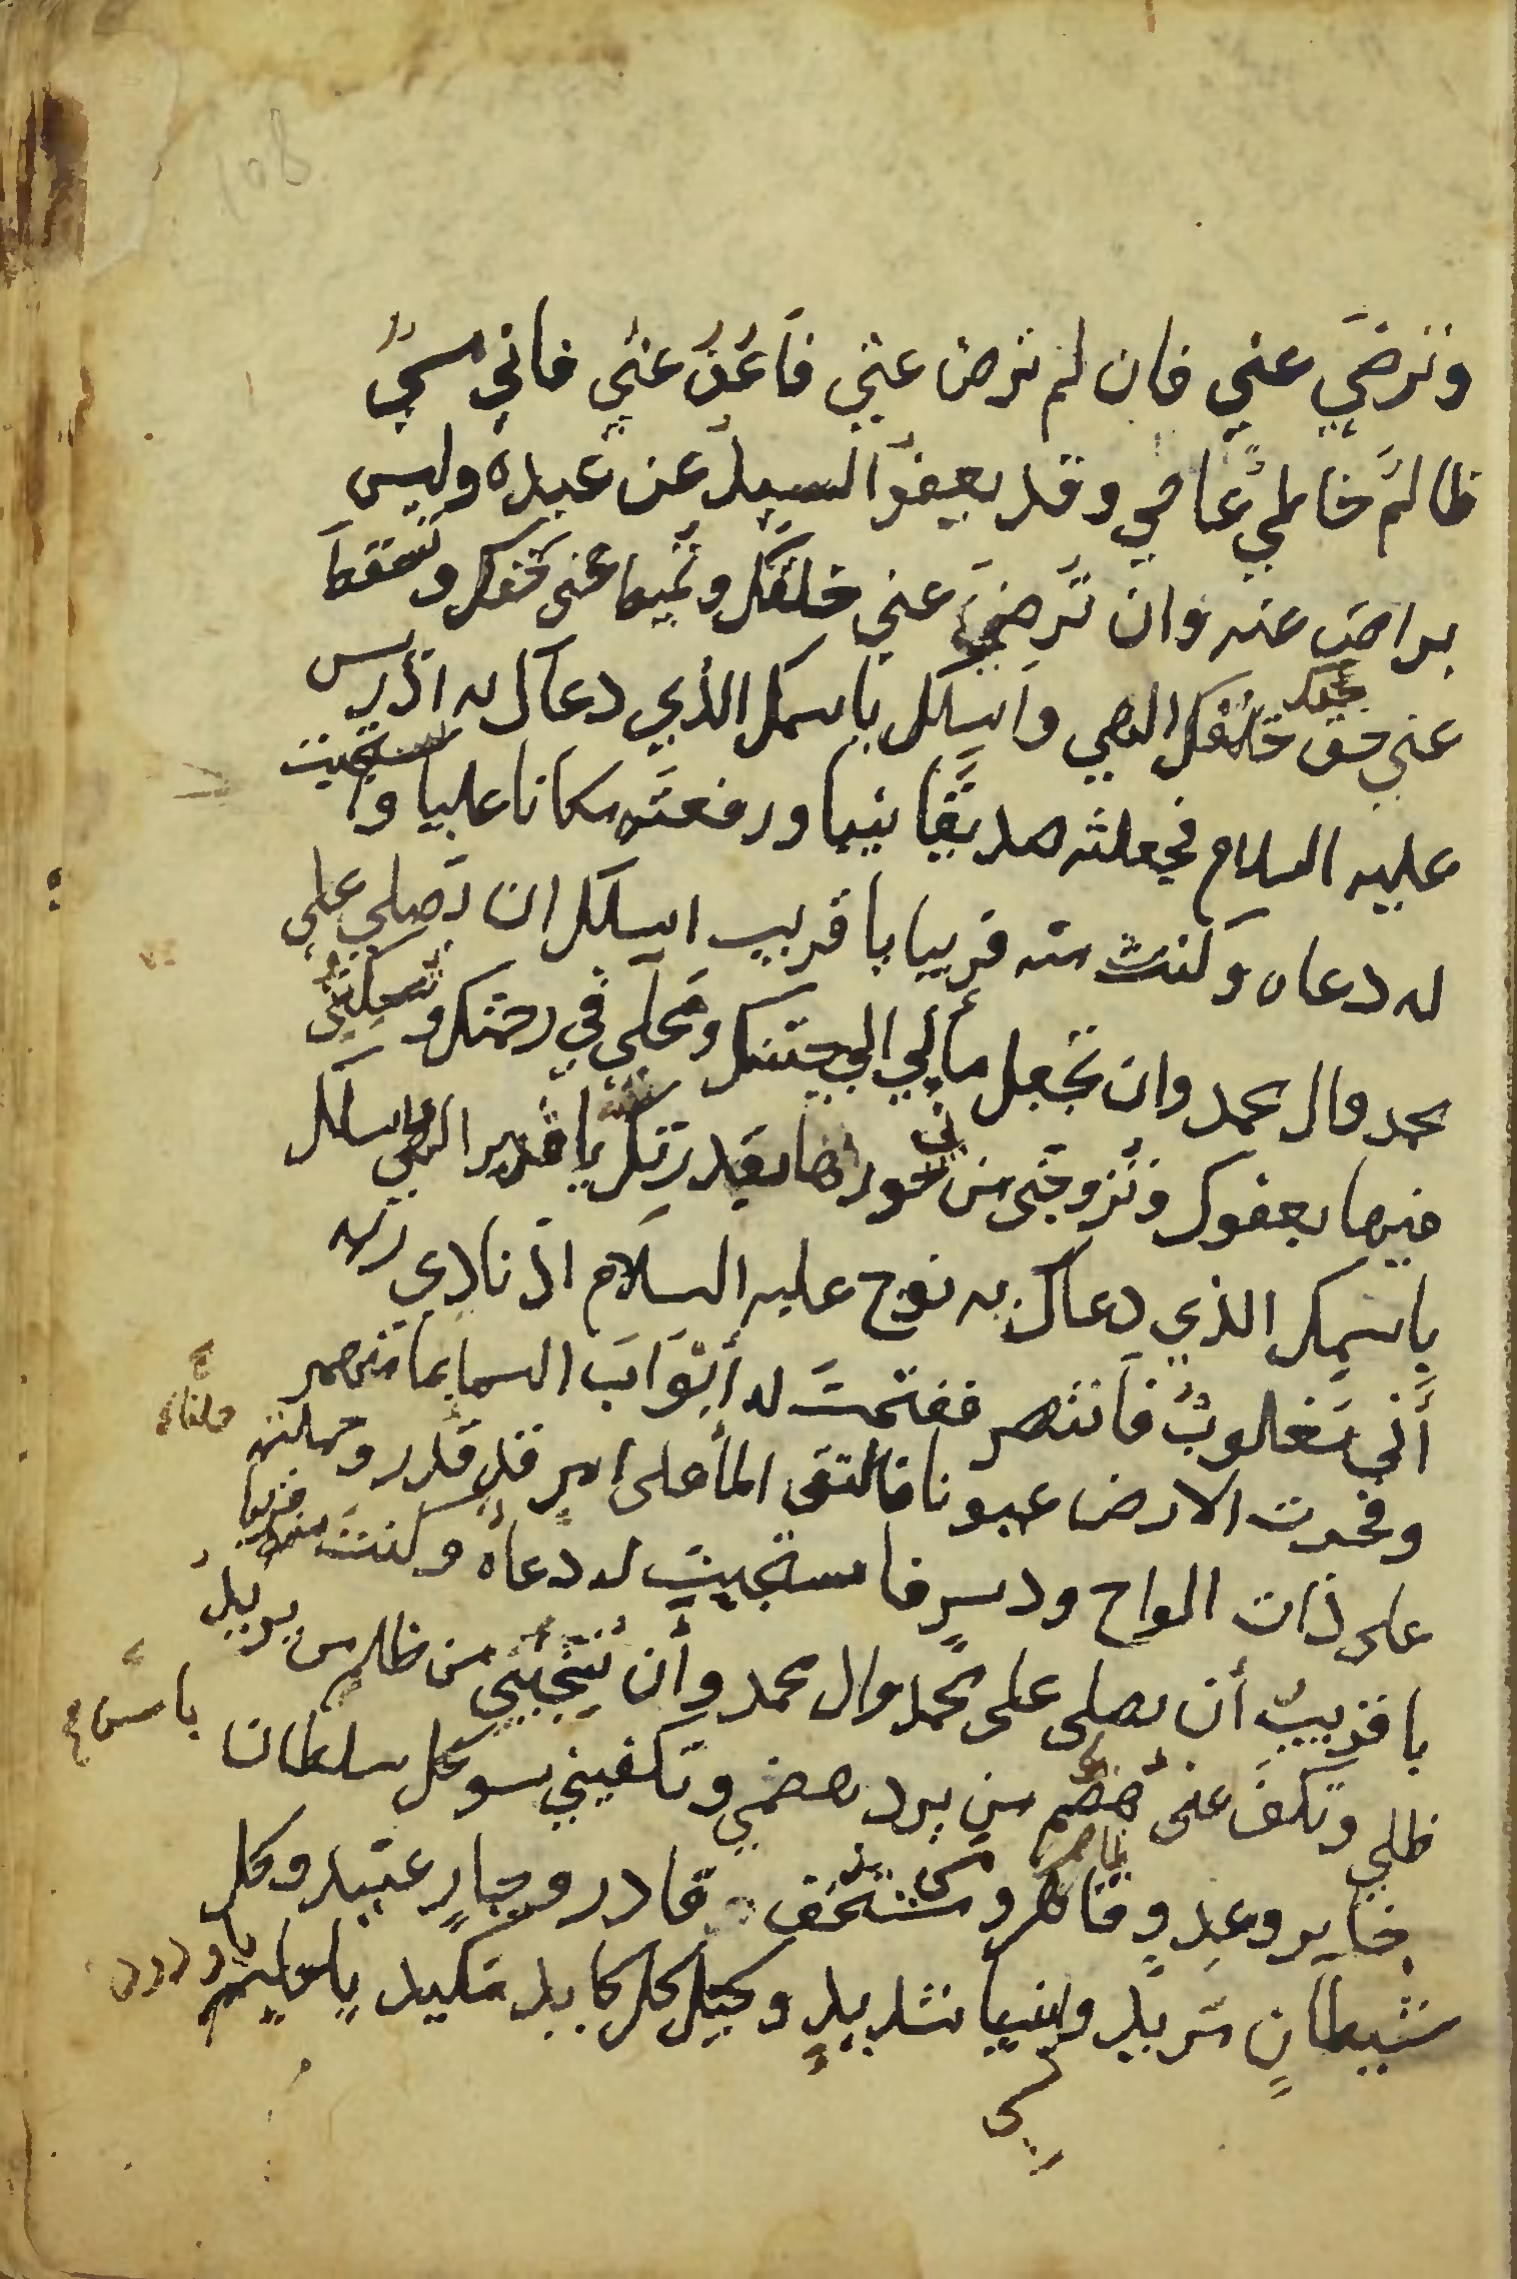 وترضَى عني فان لم ترض عنّي فَاعْفُ عنّي فاني مسيٌ
ظالمٌ خاطيٌ عَاصي وقد يعفوا السيدُ عَن عَبدهِ وليس
براضٍ عنه وان تَرضيَ عني خلقَك وتميط عنى حقك وتسقط
عني حق خلقك الهي واسلك باسمك الذي دعاك به ادريس
عليه السلام فجعلته صديقًا نبيا ورفعتَه مكانا عليا واستجبت
له دعاه وكنتَ منه قريبا يا قريب اسلك ان تصلي علي
محمد وال محمد وان تجعل مأبي الي جنتك ومحلي في رحمتك وتسكنّي
فيها بعفوك وتُزوجَني من حورها بقدرتك يا قدير الهي اسلك
باسمك الذي دعاك به نوح عليه السلام اذ نادي ربه
أَنّي مَغلوبٌ فَانتصر ففتحتَ له أَبْوَابَ السما بما منهمر
وفجرت الارض عيونا فالتقى المأ على امرٍ قد قُدر وحملته
على ذات الواح ودسرٍ فاستجبت له دعاهُ وكنتَ منه قريبا
يا قريبُ أن تصلى على محمد وال محمد وأن تنجّيني من ظلم من يريدُ
ظلمي وتكفَ عنى هضم من يرد هضمي وتكفيني سو كل سلطان
جاير وعدوٍ قاهر ومستخف قادر وجبارٍ عنيد وكل
شيطانٍ مَريد وانسيا شديدٍ وكيد كل كايد مَكيد يا حليم يا ودود